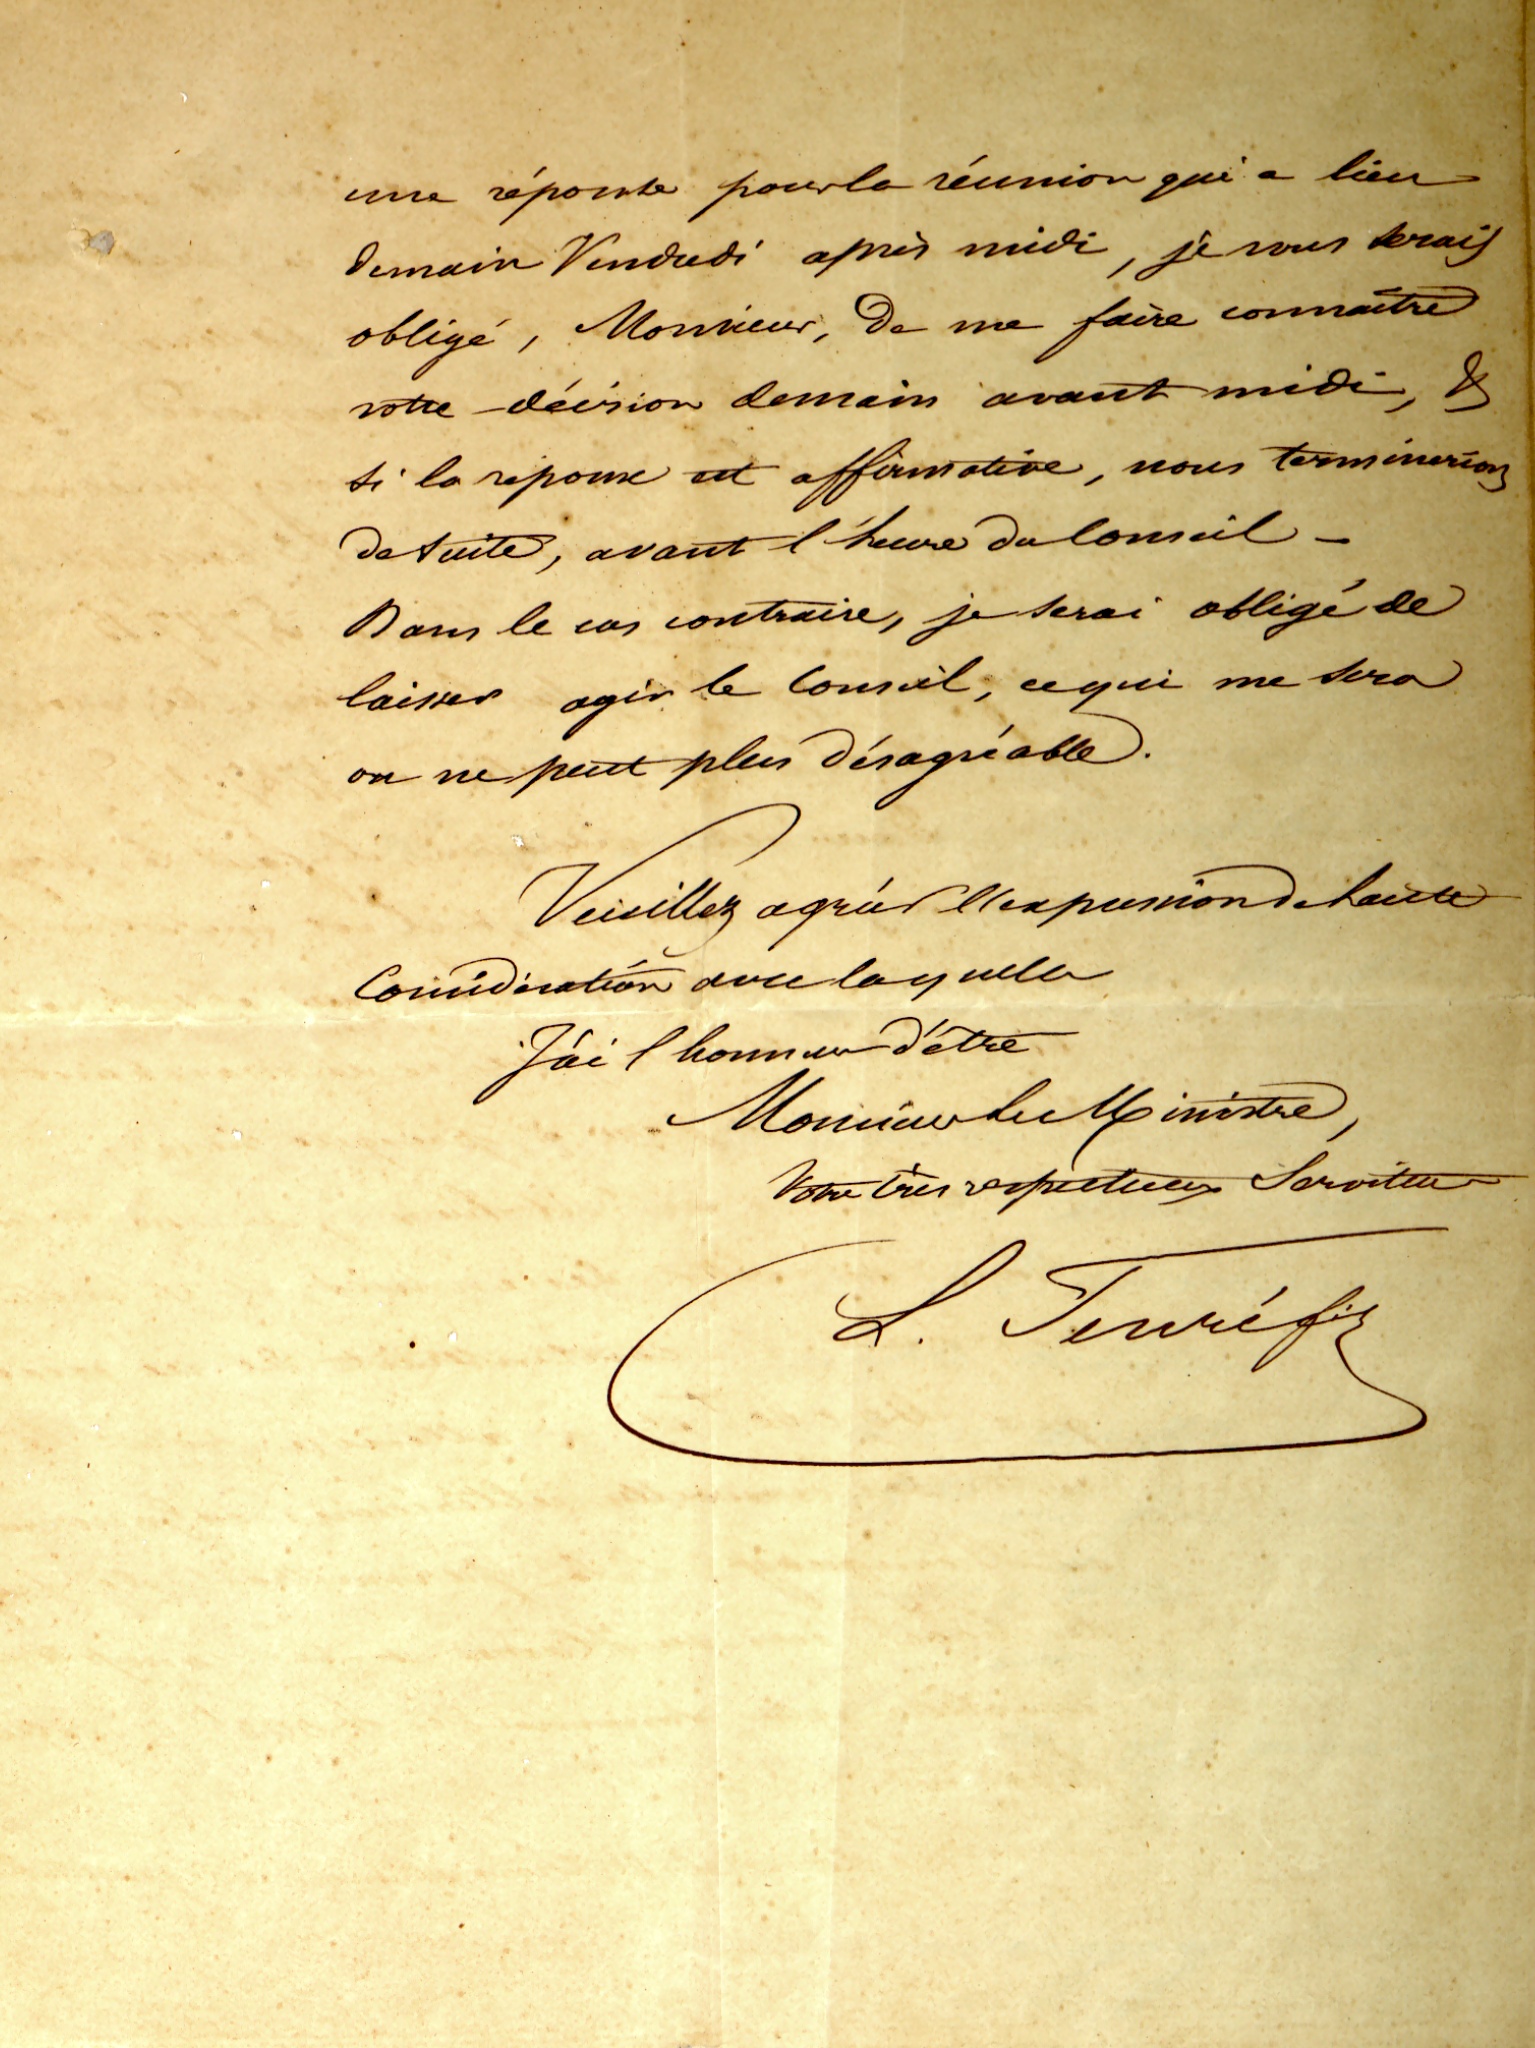 une réponse pour la réunion qui a lieu
demain Vendredi après midi, je vous serais
obligé, Monsieur, de me faire connaître
votre décision demain avant midi, &
si la réponse est affirmative, nous terminerions
de suite, avant l'heure du Conseil -
Dans le cas contraire, je serai obligé de
laisser agir le Conseil, ce qui me sera
on ne peut plus désagréable.
Veuillez agréer l'expression de haute
Considération avec laquelle
J'ai l'honneur d'être
Monsieur le Ministre,
Votre très respectueux Serviteur
L. Tenré fils